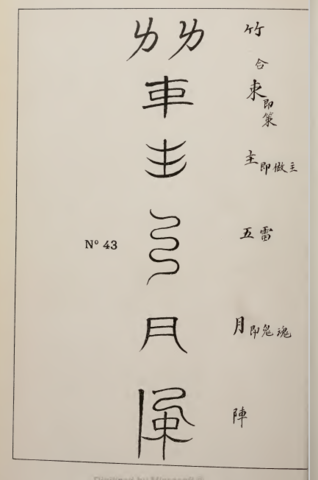 竹
合
朿即策
主即做主
N° 43
五雷
月即鬼魂
陣
Digitized by Microsoft ®